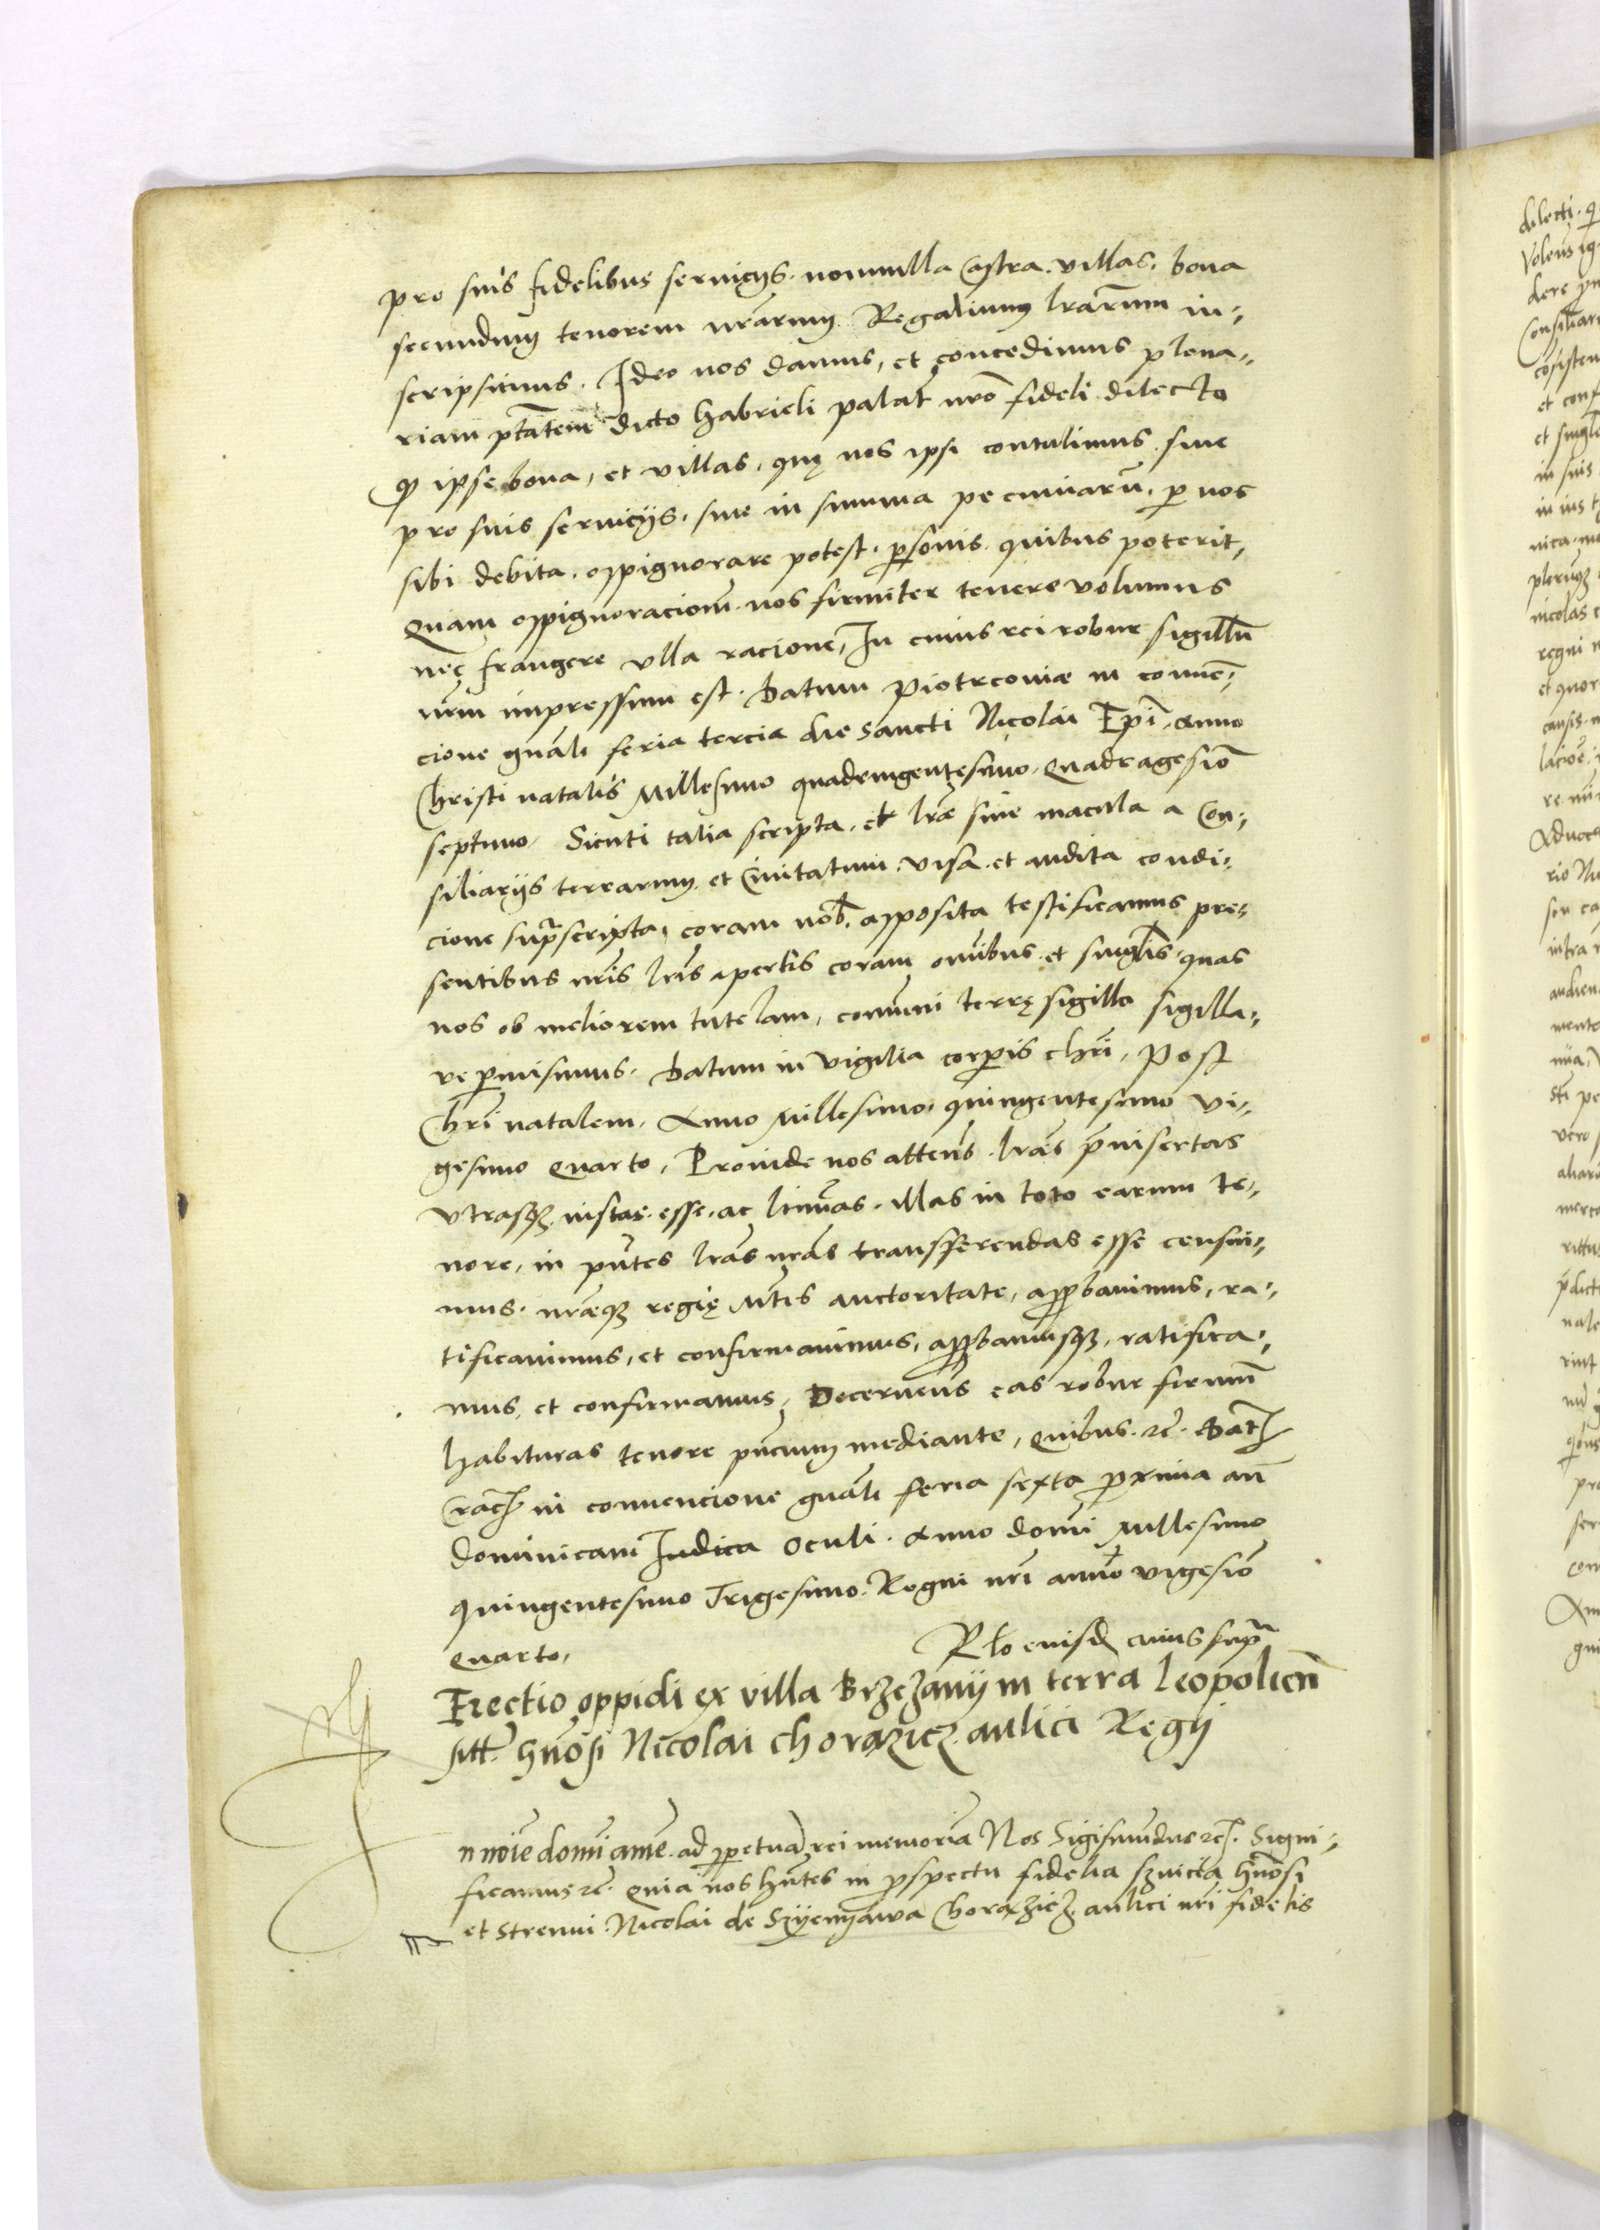 pro suis fidelibus seruicijs. nonnulla Castra. villas. bona
secundum tenorem nrarum Regalium lrarum in-
scripsimus. Ideo nos damus, et concedimus plena-
riam ptatem dicto Gabrieli palat nro fideli dilecto
q ipse bona, et villas, quę nos ipsi contulimus siue
pro suis seruicijs, siue in summa pecuniaru, p nos
sibi debita. oppignorare potest. psonis quibus poterit,
Quam oppignoracionem nos firmiter tenere volumus
nec frangere vlla racione, In cuius rei robur sigillu
nrm impressum est. Datum Piotrcouiæ in conuen-
cione gnali feria tercia die sancti Nicolai Epi. anno
Christi natalis Millesimo quadringentesimo, Quadragesio
septimo. Sicuti talia scripta, et lræ siue macula a Con-
siliarijs terrarum et Ciuitatum visa et audita condi-
cione suprascripta, coram nob. apposita testificamus pre-
sentibus nris lris apertis coram omibus et singlis. quas
nos ob meliorem tutelam, comuni terrę sigillo sigilla-
re pmisimus. Datum in vigilia corpis chri. Post
Chri natalem. Anno Millesimo quingentesimo vi-
gesimo quarto, Proinde nos attens lras pinsertas
vtrasq iustas esse, ac lituras. illas in toto earum te-
nore, in pntes lras nras transferendas esse censui-
mus. nraq regię Mtis auctoritate, approbauimus, ra-
tificauimus, et confirmauimus, approbamusq, ratifica-
mus, et confirmamus, Decernens eas robur firmum
habituras tenore pncium mediante, Quibus rc. Dat
Crac in conuencione gnali feria sexta proxima an
dominicam Iudica Oculi. Anno domi Millesimo
quingentesimo Trigesimo. Regni nri anno vigesio
quarto,
Rlo eiusd cuius supra
Erectio oppidi ex villa Brzezany in terra Leopolien
sitt. Gnosi Nicolai Chorazicz aulici Regij
n noie domi ame. ad ppetuam rei memoria Nos Sigismundus rc. Signi-
ficamus rc. Quia nos hntes in pspectu fidelia szuicia Gnosi
et Strenui Nicolai de Szyenyawa Chorazicz aulici nri fidelis